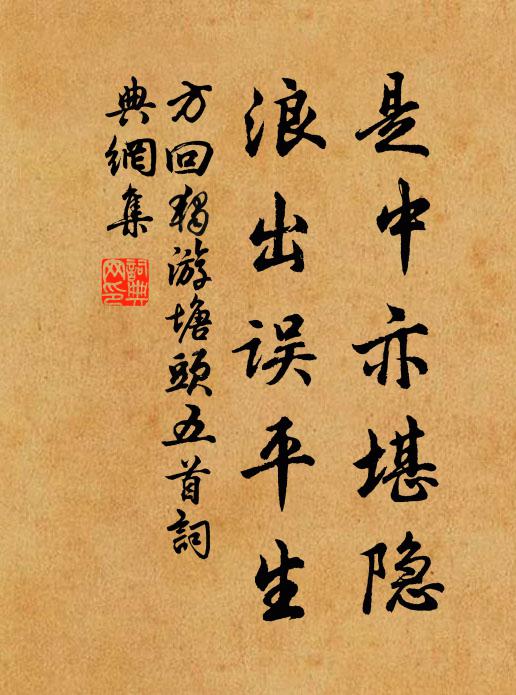 是中亦堪隐
浪出误平生
方回独游塘頭五首詞
典網集
詞典網印